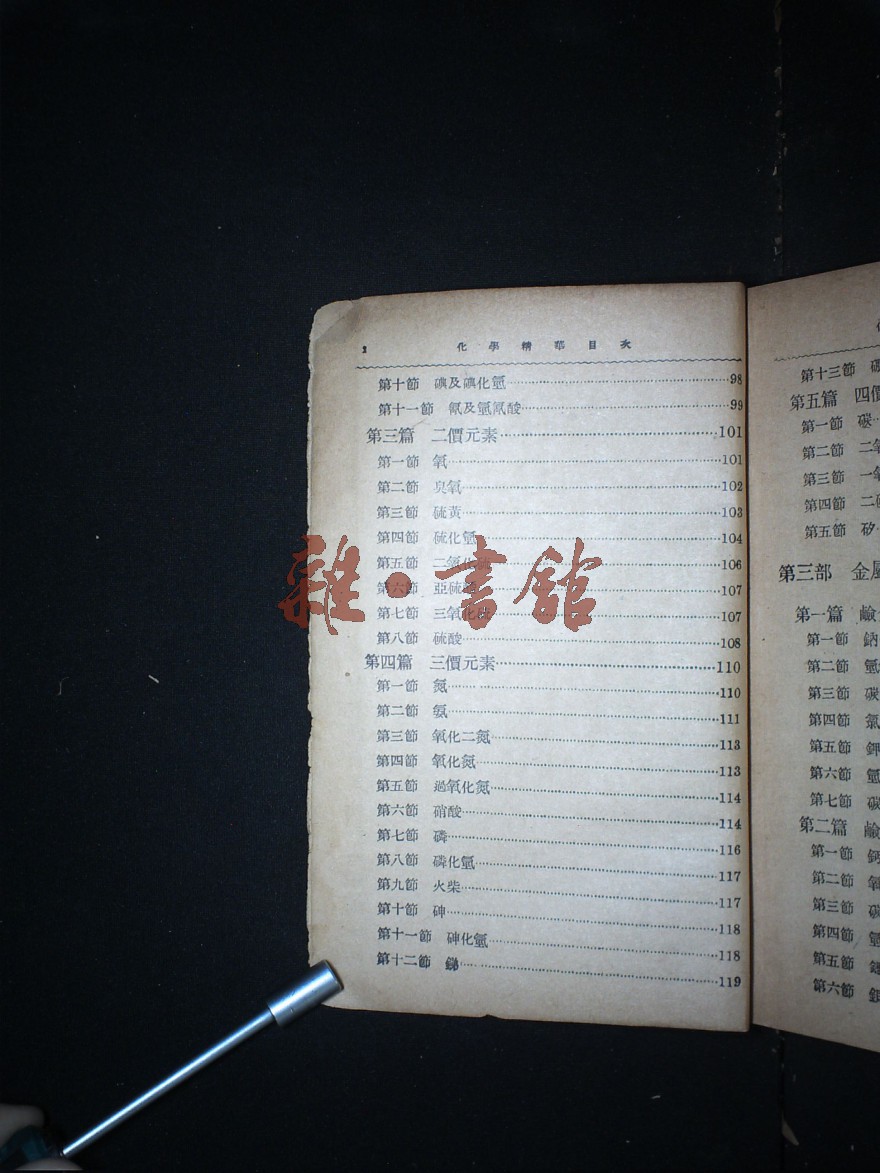 2 化學精華目次
第十節 碘及碘化氫 98
第十一節 氰及氫氰酸 99
第三篇 二價元素 101
第一節 氧 101
第二節 臭氧 102
第三節 硫黃 103
第四節 硫化氫 104
第五節 二氧化硫 106
第六節 亞硫酸 107
第七節 三氧化硫 107
第八節 硫酸 108
第四篇 三價元素 110
第一節 氮 110
第二節 氨 111
第三節 氧化二氮 113
第四節 氧化氮 113
第五節 過氧化氮 114
第六節 硝酸 114
第七節 磷 116
第八節 磷化氫 117
第九節 火柴 117
第十節 砷 118
第十一節 砷化氫 118
第十二節 銻 119
雜·書館
第十三節
第五篇 四價
第一節 碳
第二節 二氧
第三節 一氧
第四節 二硫
第五節 矽
第三部 金屬
第一篇 鹼
第一節 鈉
第二節 氫
第三節 碳
第四節 氯
第五節 鉀
第六節 氫
第七節 碳
第二篇 鹼
第一節 鈣
第二節 氧
第三節 碳
第四節 氫
第五節
第六節 鋇